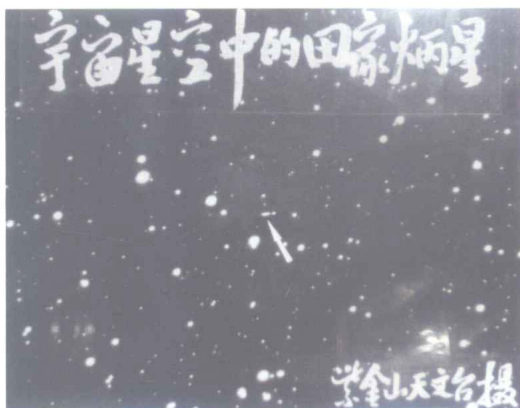 宇宙星空中的田家炳星
紫金山天文台摄